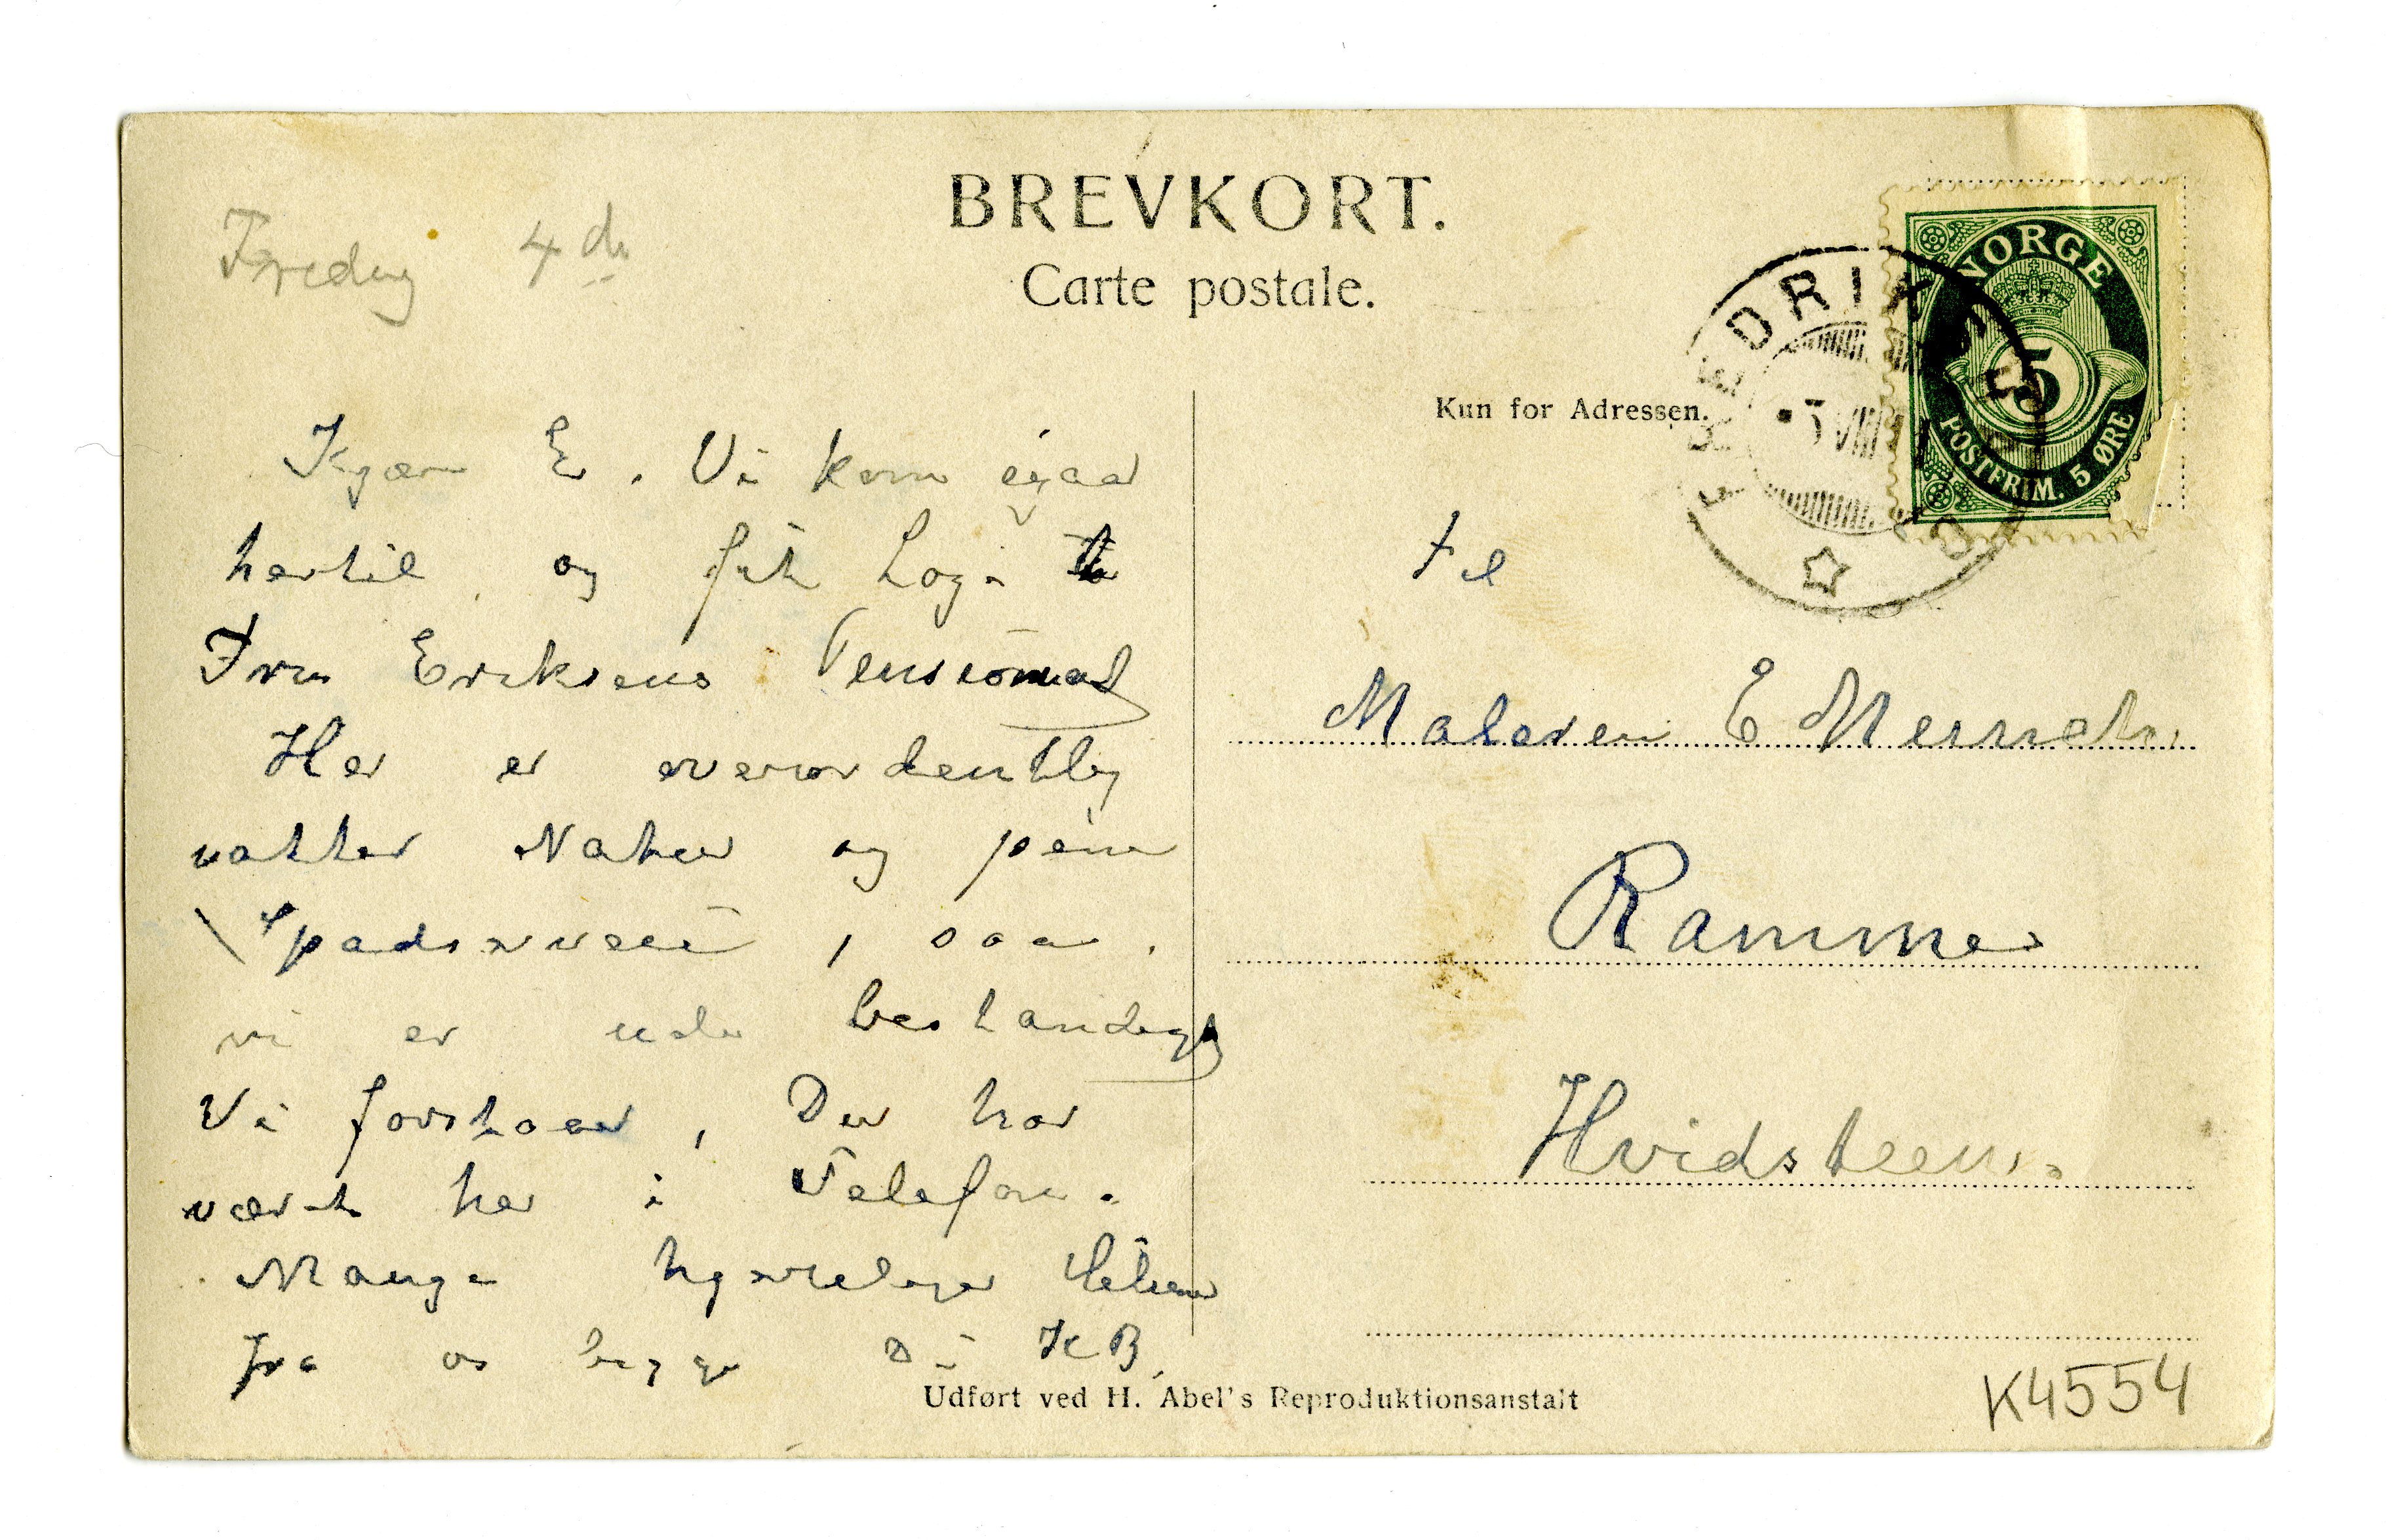 BREVKORT.
Carte postale.
Fredag 4de
Kjære E. Vi kom igaar
hertil og fik Logi
Fru Eriksens Pensionat
Her er overordentlig
vakker Natur og pene
Spadserveie, saa
vi er ude bestandigt
Vi forstaar, Du har
været her i Telefon.
Mange hjertelige Hilsener
fra os begge Din KB.
Kun for Adressen.
FREDRIKSHALD
5 VIII
NORGE
5
POSTFRIM. 5 ØRE
Til
Maleren E Munch
Ramme
Hvidsteen.
Udført ved H. Abel's Reproduktionsanstalt
K4554